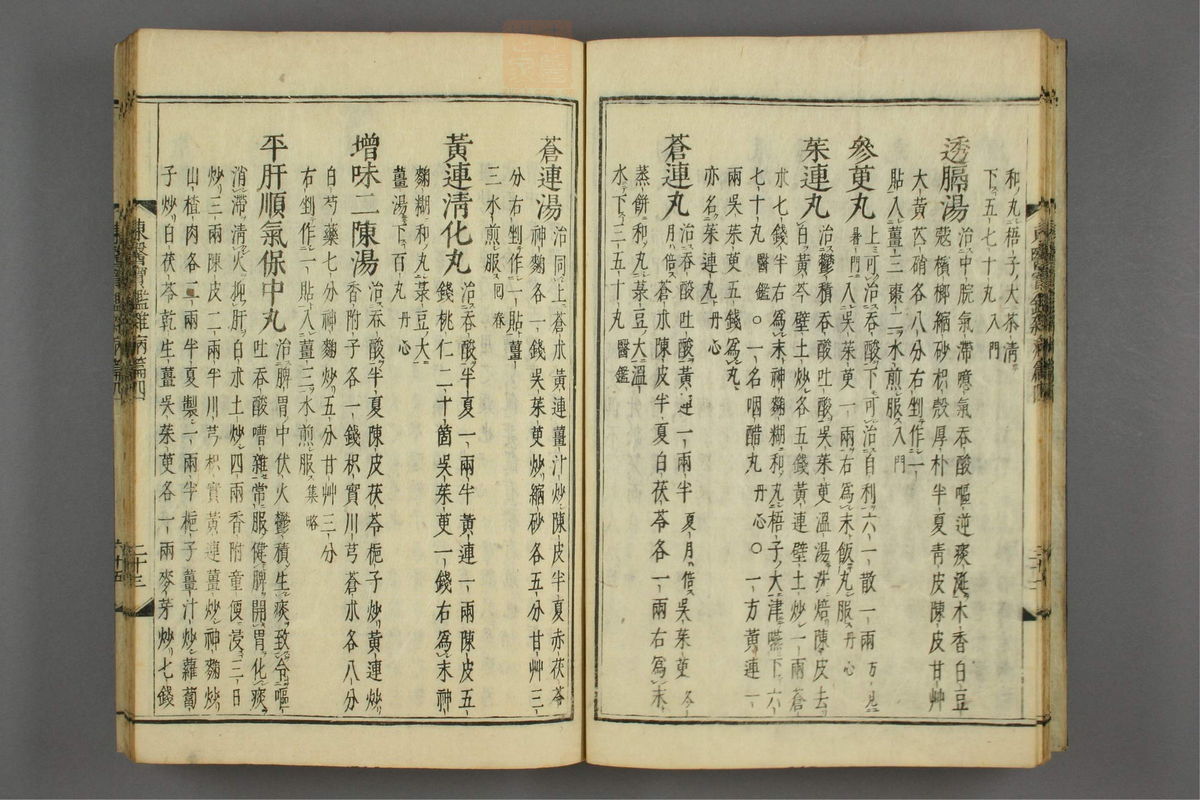 和丸梧子大茶清
下五七十丸入門
透膈湯治中脘氣滯噫氣吞酸嘔逆痰涎木香白豆
蔻檳榔縮砂枳殼厚朴半夏青皮陳皮甘艸
大黃芒硝各八分右剉作一
貼入薑三棗二水煎服入門
參萸丸上可治吞酸下可治自利六一散一兩方見
暑門入吳茱萸一兩右為末飯丸服丹心
茱連丸治鬱積吞酸吐酸吳茱萸溫湯洗焙陳皮去
白黃芩壁土炒各五錢黃連壁土炒一兩蒼
朮七錢半右為末神麴糊和丸梧子大津嚥下六
七十丸醫鑑○一名咽醋丸丹心○一方黃連一
兩吳茱萸五錢為丸
亦名茱連丸丹心
蒼連丸治吞酸吐酸黃連一兩半夏月倍吳茱萸冬
月倍蒼朮陳皮半夏白茯苓各一兩右為末
蒸餅和丸菉豆大溫
水下三五十丸醫鑑
蒼連湯治同上蒼朮黃連薑汁炒陳皮半夏赤茯苓
神麴各一錢吳茱萸炒縮砂各五分甘艸三
分右剉作一貼薑
三水煎服回春
黃連淸化丸治吞酸半夏一兩半黃連一兩陳皮五
錢桃仁二十箇吳茱萸一錢右為末神
麴糊和丸菉豆大
薑湯下百丸丹心
增味二陳湯治吞酸半夏陳皮茯苓梔子炒黃連炒
香附子各一錢枳實川芎蒼朮各八分
白芍藥七分神麴炒五分甘艸三分
右剉作一貼入薑三水煎服集略
平肝順氣保中丸治脾胃中伏火鬱積生痰致令嘔
吐吞酸嘈雜常服健脾開胃化痰
消滯淸火抑肝白朮土炒四兩香附童便浸三日
炒三兩陳皮二兩半川芎枳實黃連薑炒神麴炒
山楂肉各二兩半夏製一兩半梔子薑汁炒蘿蔔
子炒白茯苓乾生薑吳茱萸各一兩麥芽炒七錢